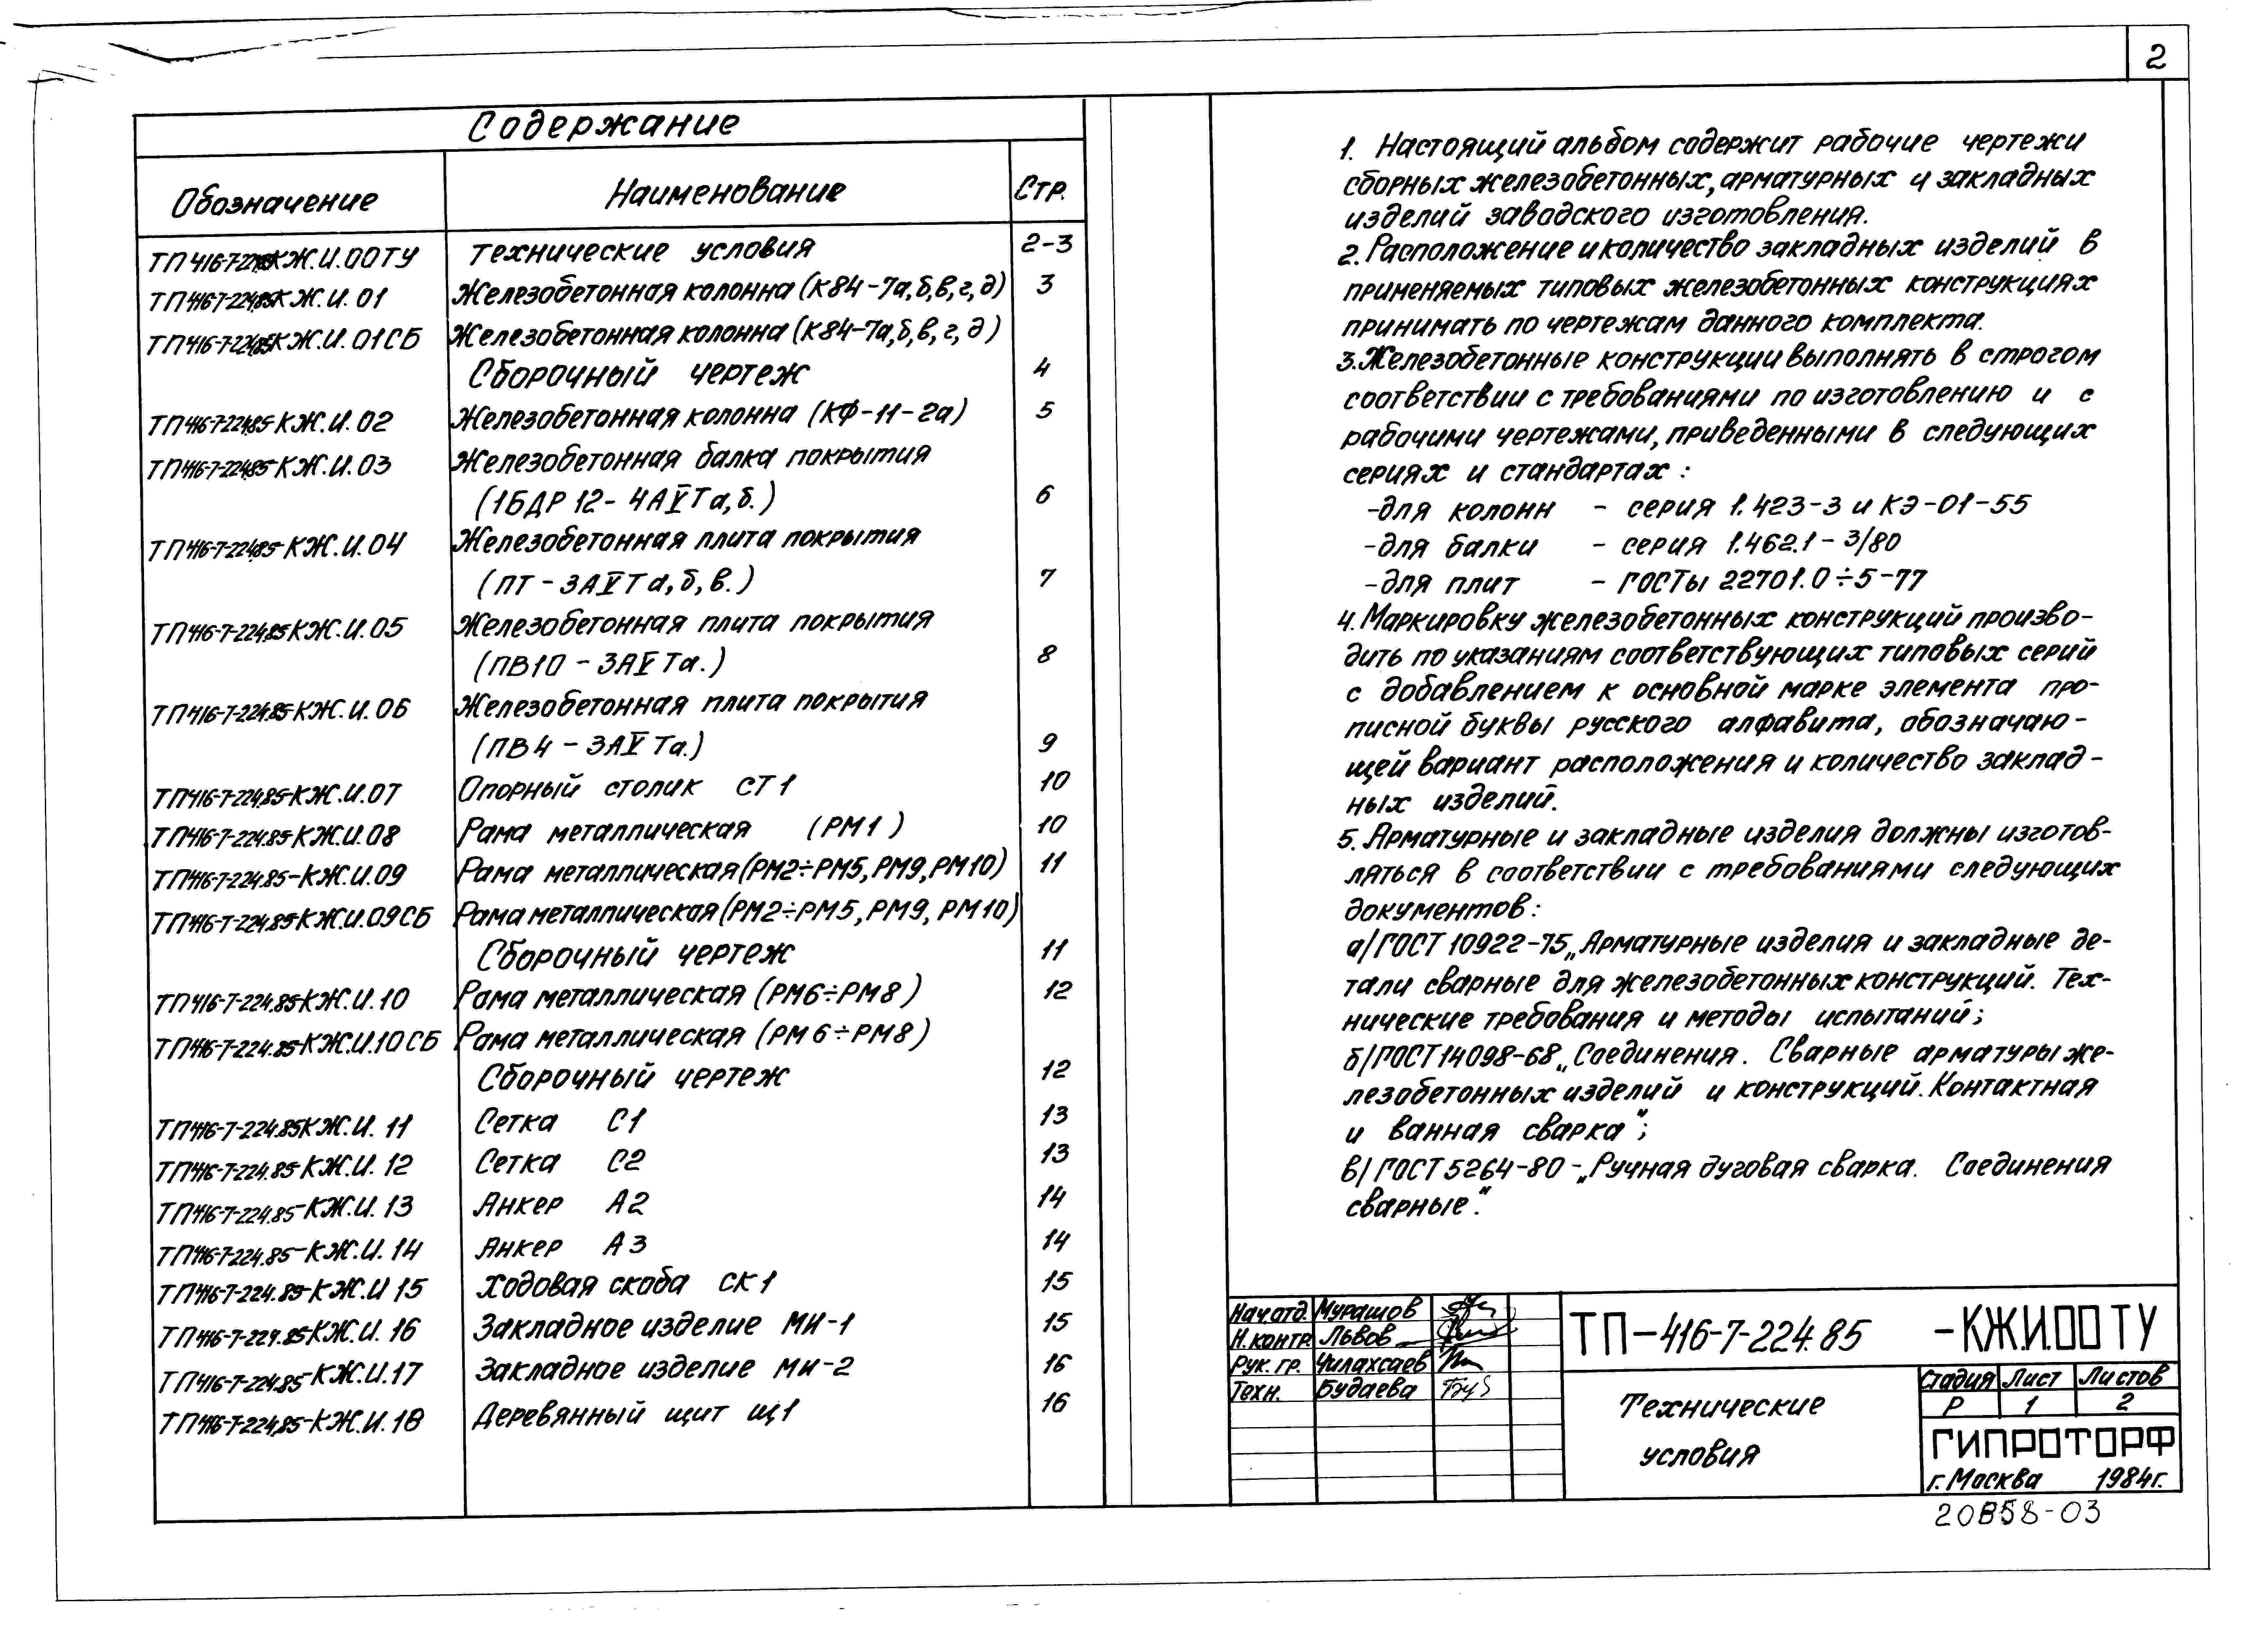 2
Содержание
Обозначение Наименование Стр.
ТП 416-7-224.85 КЖ.И.00ТУ Технические условия 2-3
ТП 416-7-224.85 КЖ.И. 01 Железобетонная колонна (К84-7а,б,в,г,д) 3
ТП 416-7-224.85 КЖ.И. 01СБ Железобетонная колонна (К84-7а,б,в,г,д)
Сборочный чертеж 4
ТП 416-7-224.85-КЖ.И. 02 Железобетонная колонна (КФ-11-2а) 5
ТП 416-7-224.85-КЖ.И. 03 Железобетонная балка покрытия
(1БДР 12-4АⅤТа,б.) 6
ТП 416-7-224.85-КЖ.И.04 Железобетонная плита покрытия
(ПТ-3АⅤТа,б,в.) 7
ТП 416-7-224.85 КЖ.И.05 Железобетонная плита покрытия
(ПВ10-3АⅤТа.) 8
ТП 416-7-224.85-КЖ.И.06 Железобетонная плита покрытия
(ПВ4-3АⅤТа.) 9
ТП 416-7-224.85-КЖ.И.07 Опорный столик СТ1 10
ТП 416-7-224.85-КЖ.И.08 Рама металлическая (РМ1) 10
ТП 416-7-224.85-КЖ.И.09 Рама металлическая (РМ2÷РМ5, РМ9, РМ10) 11
ТП 416-7-224.85 КЖ.И.09СБ Рама металлическая (РМ2÷РМ5, РМ9, РМ10)
Сборочный чертеж 11
ТП 416-7-224.85 КЖ.И.10 Рама металлическая (РМ6÷РМ8) 12
ТП 416-7-224.85-КЖ.И.10СБ Рама металлическая (РМ6÷РМ8)
Сборочный чертеж 12
ТП 416-7-224.85 КЖ.И. 11 Сетка С1 13
ТП 416-7-224.85 КЖ.И. 12 Сетка С2 13
ТП 416-7-224.85-КЖ.И. 13 Анкер А2 14
ТП 416-7-224.85-КЖ.И. 14 Анкер А3 14
ТП 416-7-224.85-КЖ.И 15 Ходовая скоба СК1 15
ТП 416-7-224.85 КЖ.И. 16 Закладное изделие МИ-1 15
ТП 416-7-224.85-КЖ.И.17 Закладное изделие МИ-2 16
ТП 416-7-224.85-КЖ.И.18 Деревянный щит Щ1 16
1. Настоящий альбом содержит рабочие чертежи
сборных железобетонных, арматурных и закладных
изделий заводского изготовления.
2. Расположение и количество закладных изделий в
применяемых типовых железобетонных конструкциях
принимать по чертежам данного комплекта.
3. Железобетонные конструкции выполнять в строгом
соответствии с требованиями по изготовлению и с
рабочими чертежами, приведенными в следующих
сериях и стандартах:
-для колонн - серия 1.423-3 и КЭ-01-55
-для балки - серия 1.462.1-3/80
-для плит - ГОСТы 22701.0÷5-77
4. Маркировку железобетонных конструкций произво-
дить по указаниям соответствующих типовых серий
с добавлением к основной марке элемента про-
писной буквы русского алфавита, обозначаю-
щей вариант расположения и количество заклад-
ных изделий.
5. Арматурные и закладные изделия должны изготов-
ляться в соответствии с требованиями следующих
документов:
а/ ГОСТ 10922-75 „Арматурные изделия и закладные де-
тали сварные для железобетонных конструкций. Тех-
нические требования и методы испытаний;
б/ ГОСТ 14098-68 „Соединения. Сварные арматуры же-
лезобетонных изделий и конструкций. Контактная
и ванная сварка";
в/ ГОСТ 5264-80-„Ручная дуговая сварка. Соединения
сварные".
Нач.отд. Мурашов
Н.контр. Львов
Рук. гр. Чилахсаев
Техн. Будаева
ТП-416-7-224.85 -КЖИ.00 ТУ
Технические
условия
Стадия Лист Листов
Р 1 2
ГИПРОТОРФ
г. Москва 1984г.
20858-03